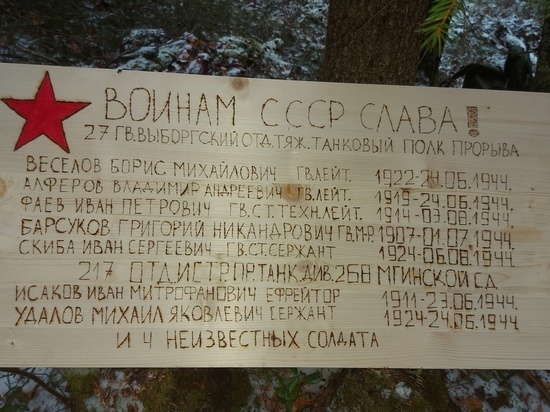 ВОИНАМ СССР СЛАВА!
27 ГВ.ВЫБОРГСКИЙ ОТД.ТЯЖ.ТАНКОВЫЙ ПОЛК ПРОРЫВА
ВЕСЕЛОВ БОРИС МИХАЙЛОВИЧ ГВ.ЛЕЙТ. 1922-24.06.1944.
АЛФЕРОВ ВЛАДИМИР АНДРЕЕВИЧ ГВ.ЛЕЙТ. 1919-24.06.1944.
ФАЕВ ИВАН ПЕТРОВИЧ ГВ.СТ.ТЕХН.ЛЕЙТ. 1914-03.06.1944.
БАРСУКОВ ГРИГОРИЙ НИКАНДРОВИЧ ГВ.М-Р. 1907-01.07.1944.
СКИБА ИВАН СЕРГЕЕВИЧ ГВ.СТ.СЕРЖАНТ 1924-06.06.1944.
217 ОТД.ИСТР.ПР.ТАНК.ДИВ. 268 МГИНСКОЙ СД
ИСАКОВ ИВАН МИТРОФАНОВИЧ ЕФРЕЙТОР 1911-23.06.1944.
УДАЛОВ МИХАИЛ ЯКОВЛЕВИЧ СЕРЖАНТ 1924-24.06.1944.
И 4 НЕИЗВЕСТНЫХ СОЛДАТА